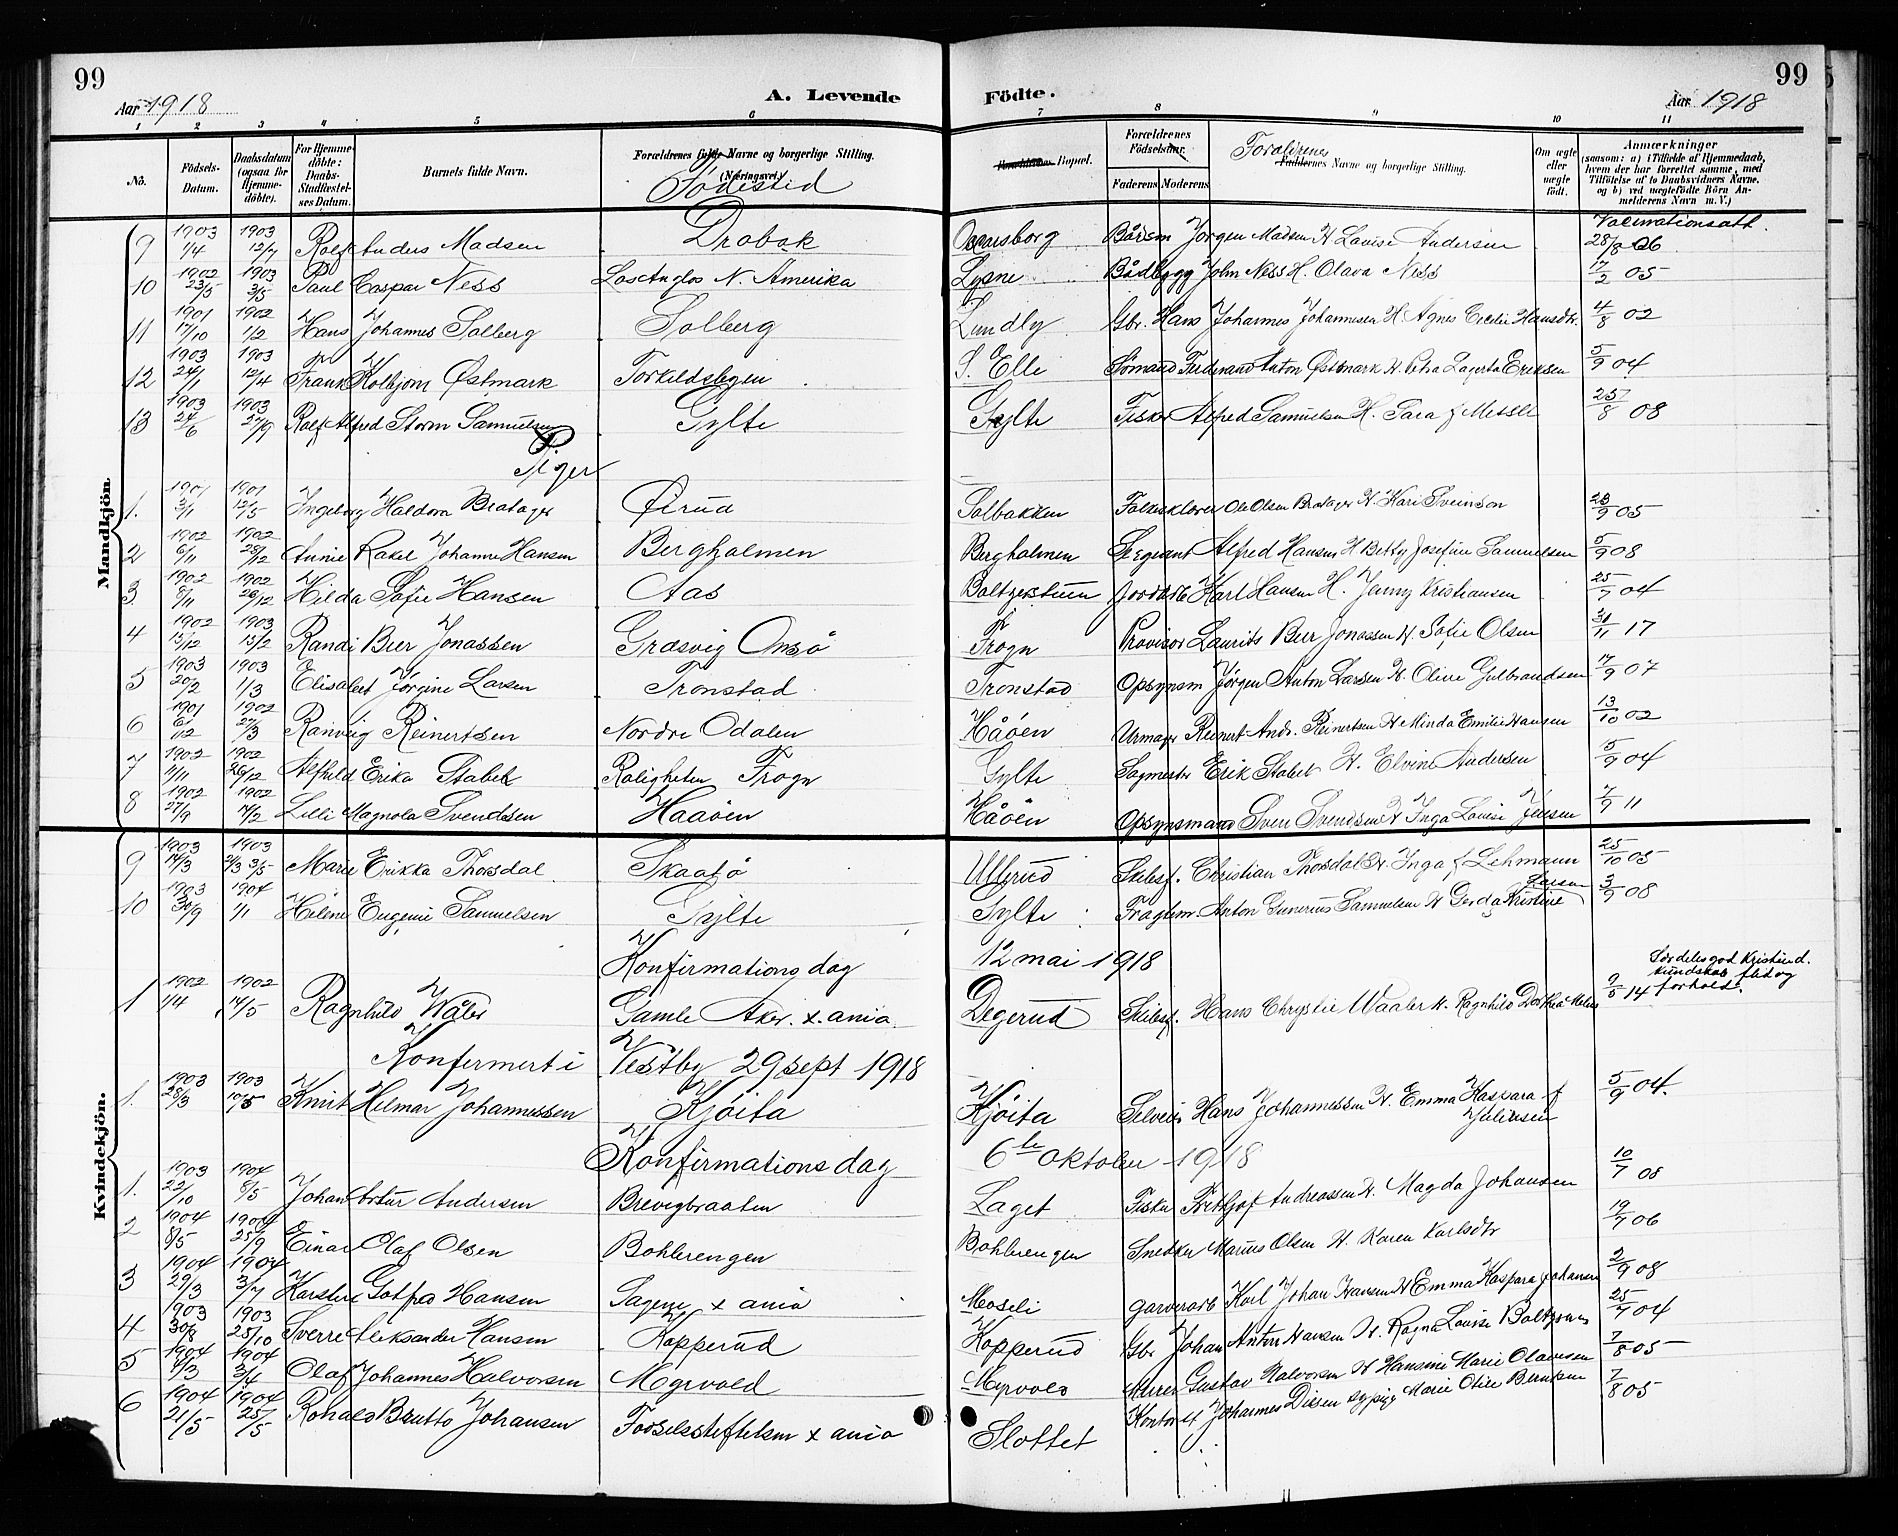 99
Aar 1918
A. Levende
Födte.
Aar 1918
99
1 2 3 4 5 6 7 8 9 10 11
No.
Födsels-Datum.
Daabsdatum (ogsaa for Hjemme-döbte).
For Hjemme-döbte: Daabs-Stadfæstel-ses Datum.
Barnets fulde Navn.
Forældrenes fulde Navne og borgerlige Stilling. (Næringsvei)
Födested
Forældrenes Bopæl.
Forældrenes Födselsaar.
Faderens Moderens
Foraldrenes
Faddernes Navne og borgerlige Stilling.
Om ægte eller uægte födt.
Anmærkninger (saasom: a) i Tilfælde af Hjemmedaab, hvem der har forrettet samme, med Tilföielse af to Daabsvidners Navne, og b) ved uægtefödte Börn An-melderens Navn m. V.)
Vaccinationsatt.
Mandkjön.
9 1903 1/4 1903 12/7 Rolf Anders Madsen Drøbak Oscarsborg Bådsm Jørgen Madsen H Lovise Andersen 28/8 06
10 1902 23/5 1903 3/5 Paul Caspar Ness Los Anglos N. Amerika Lysne Bådbygg John Ness H. Olava Ness 17/2 05
11 1901 17/10 1902 1/2 Hans Johannes Solberg Solberg Lundby Gbr. Hans Johannes Johannesen H. Agnes Hansdtr. 4/8 02
12 1903 24/1 1903 12/4 Frank Kolbjørn Østmark Torkildsbyen S. Elle Sømand Ferdinand Anton Østmark H. Petra Lagerta Eriksen 5/9 04
13 1903 24/6 1903 27/9 Rolf Alfred Storm Samuelsen Gylte Gylte Fisker Alfred Samuelsen H. Sara f. 25/8 08
Piger
1. 1901 3/1 1901 12/5 Ingeborg Haldora Bratager Ørud Solbakken Ole Olsen Bratager H. Kari Sveinson 28/9 05
2 1902 6/11 1902 28/12 Annie Rakel Johanne Hansen Bergholmen Bergholmen Sergeant Alfred Hansen H Betty Josefine Samuelsen 5/9 08
3. 1902 8/11 1902 26/12 Hilda Sofie Hansen Aas Boltzerstuen Karl Hansen H. Jenny Kristiansen 25/7 04
4 1902 15/12 1903 15/2 Randi Beer Jonassen Græsvig Onsø Frogn Provisor Laurits Beer Jonassen H Sofie Olsen 31/11 17
5 1903 20/2 1903 1/3 Elisabet Jørgine Larsen Tronstad Tronstad Opsynsm Jørgen Anton Larsen H. Oline Gulbrandsen 17/9 07
6 1901 6/12 1902 27/3 Ranveig Reinertsen Nordre Odalen Håøen Urmager Reinert Andr. Reinertsen H Minda Emilie Hansen 13/10 02
7 1902 4/11 1902 26/12 Alfhild Erika Stabel Roligheten Frogn Gylte Sagmester Erik Stabel H. Elvine Andersen 5/9 04
8 1902 27/9 1902 14/2 Lilli Magnola Svendsen Haaøen Håøen Opsynsmand Sven Svendsen H Inga Lovise Jensen 7/9 11
Kvindekjön.
9 1903 14/3 1903 3/5 Marie Erikka Thorsdal Skaatø Ullerud Skibsf. Christian Thorsdal H. Inga f Lehmann 25/10 05
10 1903 30/9 1904 1/1 Helene Eugenie Samuelsen Gylte Gylte Fragtem Anton Gunerius Samuelsen H Gerda Kristine Larsen 3/9 08
Konfirmationsdag 12 mai 1918
1 1902 1/4 1902 14/5 Ragnhild Wåler Gamle Aker. x. ania Degerud Skibsf. Hans Chrystie Waaler H. Ragnhild Dorthea 9/5 14 Særdeles god Kristend. kundskab flid og forhold.
Konfermert i Vestby 29 sept 1918
1. 1903 28/3 1903 10/5 Knut Hilmar Johannessen Kjøita Kjøita Hans Johannessen H. Emma Kaspara f Julinsen 5/9 04.
Konfirmationsdag 6te oktober 1918
1. 1903 22/10 1904 8/5 Johan Artur Andersen Brevigbraaten Laget Fisker Fritjof Andreassen H. Magda Johansen 10/7 08
2 1904 8/5 1904 25/9 Einar Olaf Olsen Bohlerengen Bohlerengen Snedker Marius Olsen H. Karen Karlsdtr 19/7 06
3 1904 29/3 1904 3/7 Karsten Gotfred Hansen Sagene x ania Moseli garverarb Karl Johan Hansen H Emma Kaspara Johansen 2/9 08
4 1903 30/8 1903 25/10 Sverre Aleksander Hansen Kopperud Kopperud Gbr Johan Anton Hansen H. Ragna Lovise Boltzersen 25/7 04
5 1904 4/3 1904 3/4 Olaf Johannes Halvorsen Myrvold Myrvold Murer Gustav Halvorsen H Hansine Marie Olavesen 7/8 05
6 1904 21/5 1904 25/5 Ronald Brutto Johansen Fødselsstiftelsen x ania Slottet Kontorist Johannes Diesen sypige Marie Otilie Berntsen 7/8 05